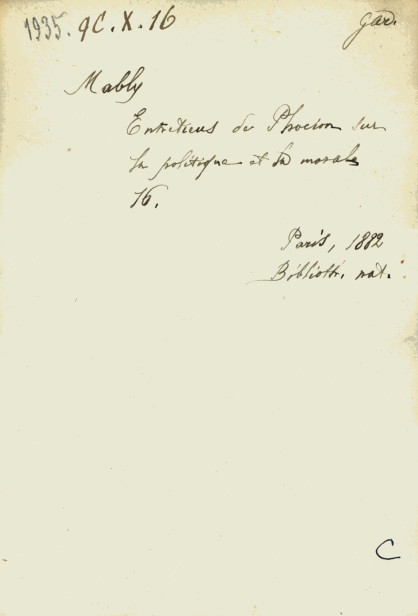 1935. 9C. X. 16
gad.
Mably
Entretiens de Phocion sur
la politique et la morale
16.
Paris, 1882
Biblioth. nat.
C